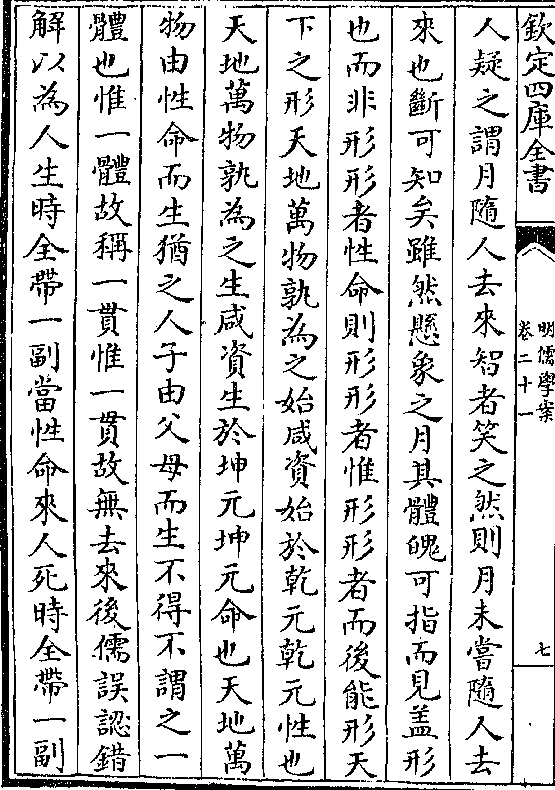 欽定四庫全書
明儒學案
卷二十一
七
人疑之謂月隨人去來智者笑之然則月未嘗隨人去
來也斷可知矣雖然懸象之月其體魄可指而見盖形
也而非形形者性命則形形者惟形形者而後能形天
下之形天地萬物孰為之始咸資始於乾元乾元性也
天地萬物孰為之生咸資生於坤元坤元命也天地萬
物由性命而生猶之人子由父母而生不得不謂之一
體也惟一體故稱一貫惟一貫故無去來後儒誤認錯
解以為人生時全帶一副當性命來人死時全帶一副